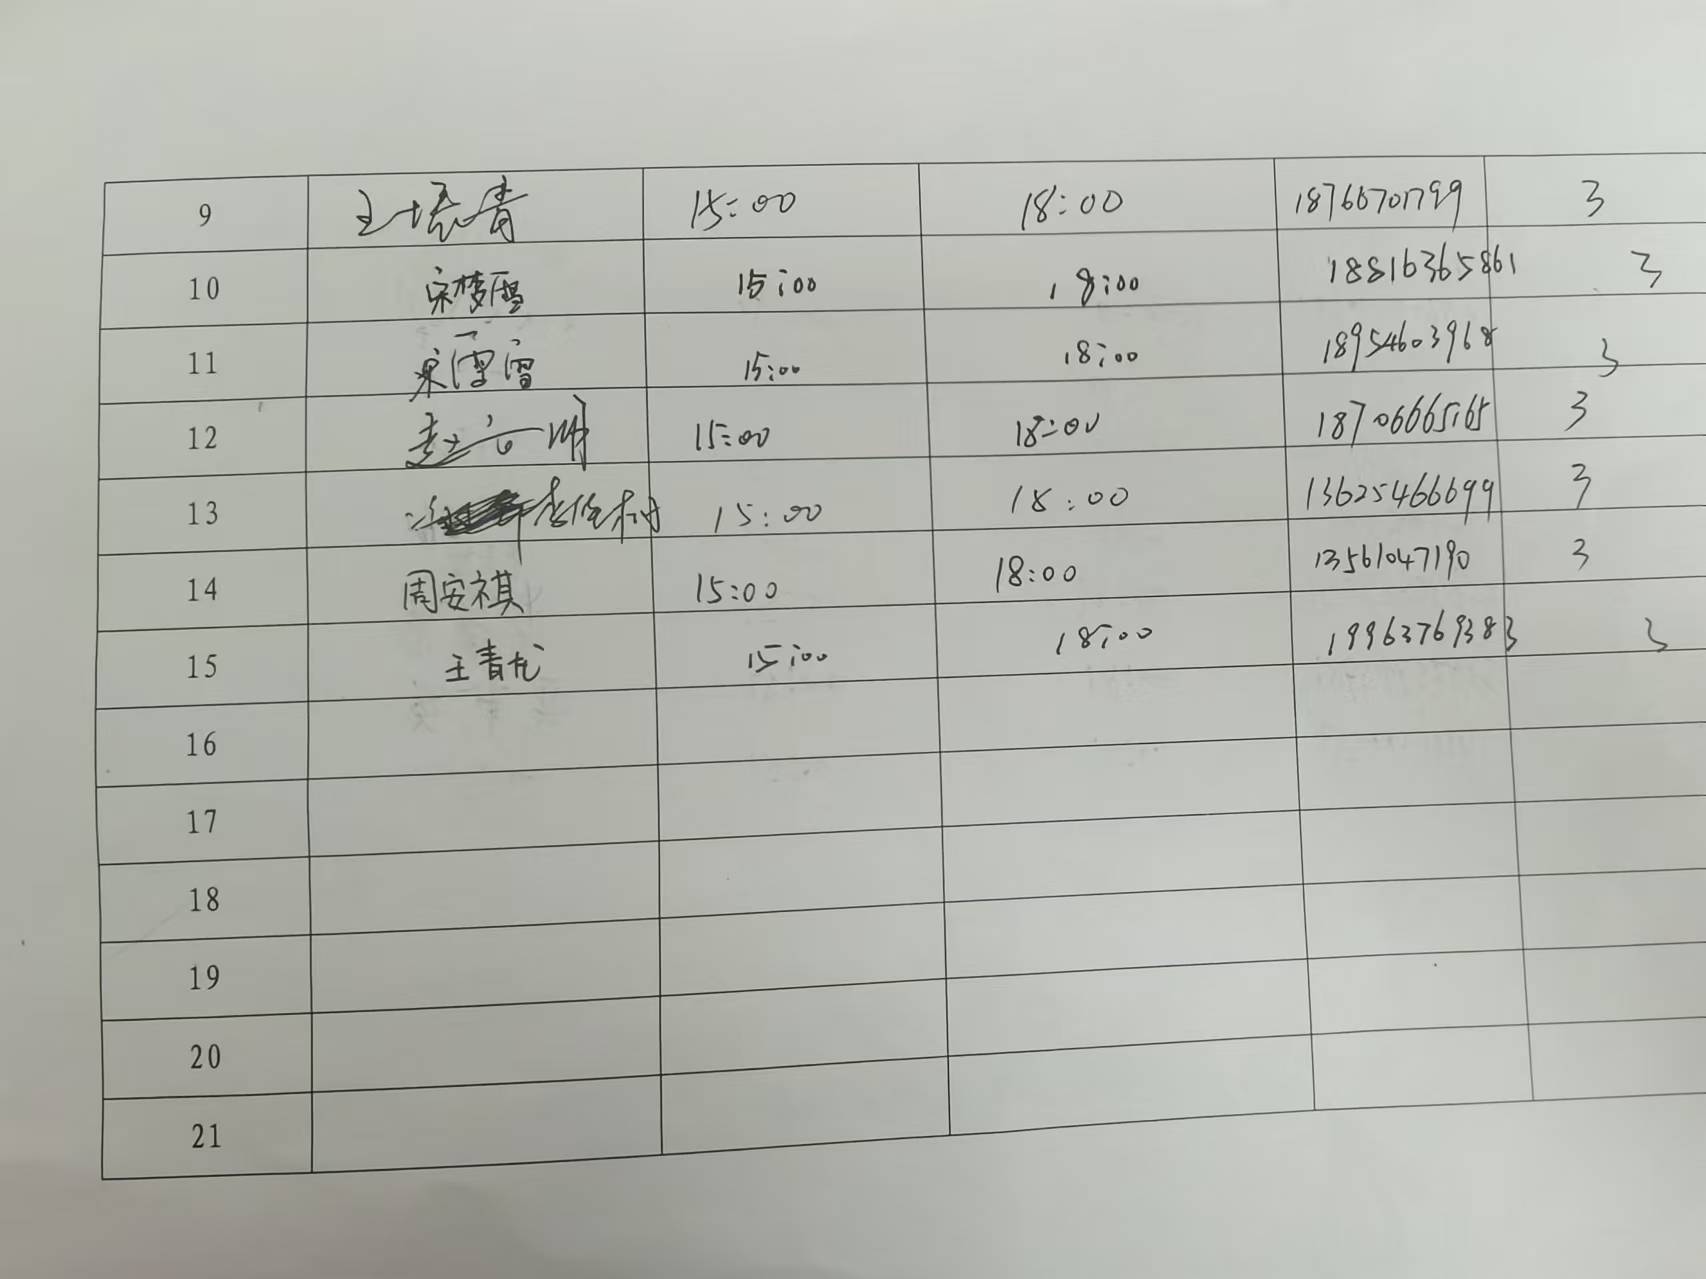 9 王振青 15:00 18:00 18766701799 3
10 宋梦雪 15:00 18:00 18816365861 3
11 宋雪雪 15:00 18:00 18954603968 3
12 15:00 18:00 18706665165 3
13 15:00 18:00 13625466699 3
14 周安祺 15:00 18:00 13561047190 3
15 王青龙 15:00 18:00 19963769383 3
16
17
18
19
20
21